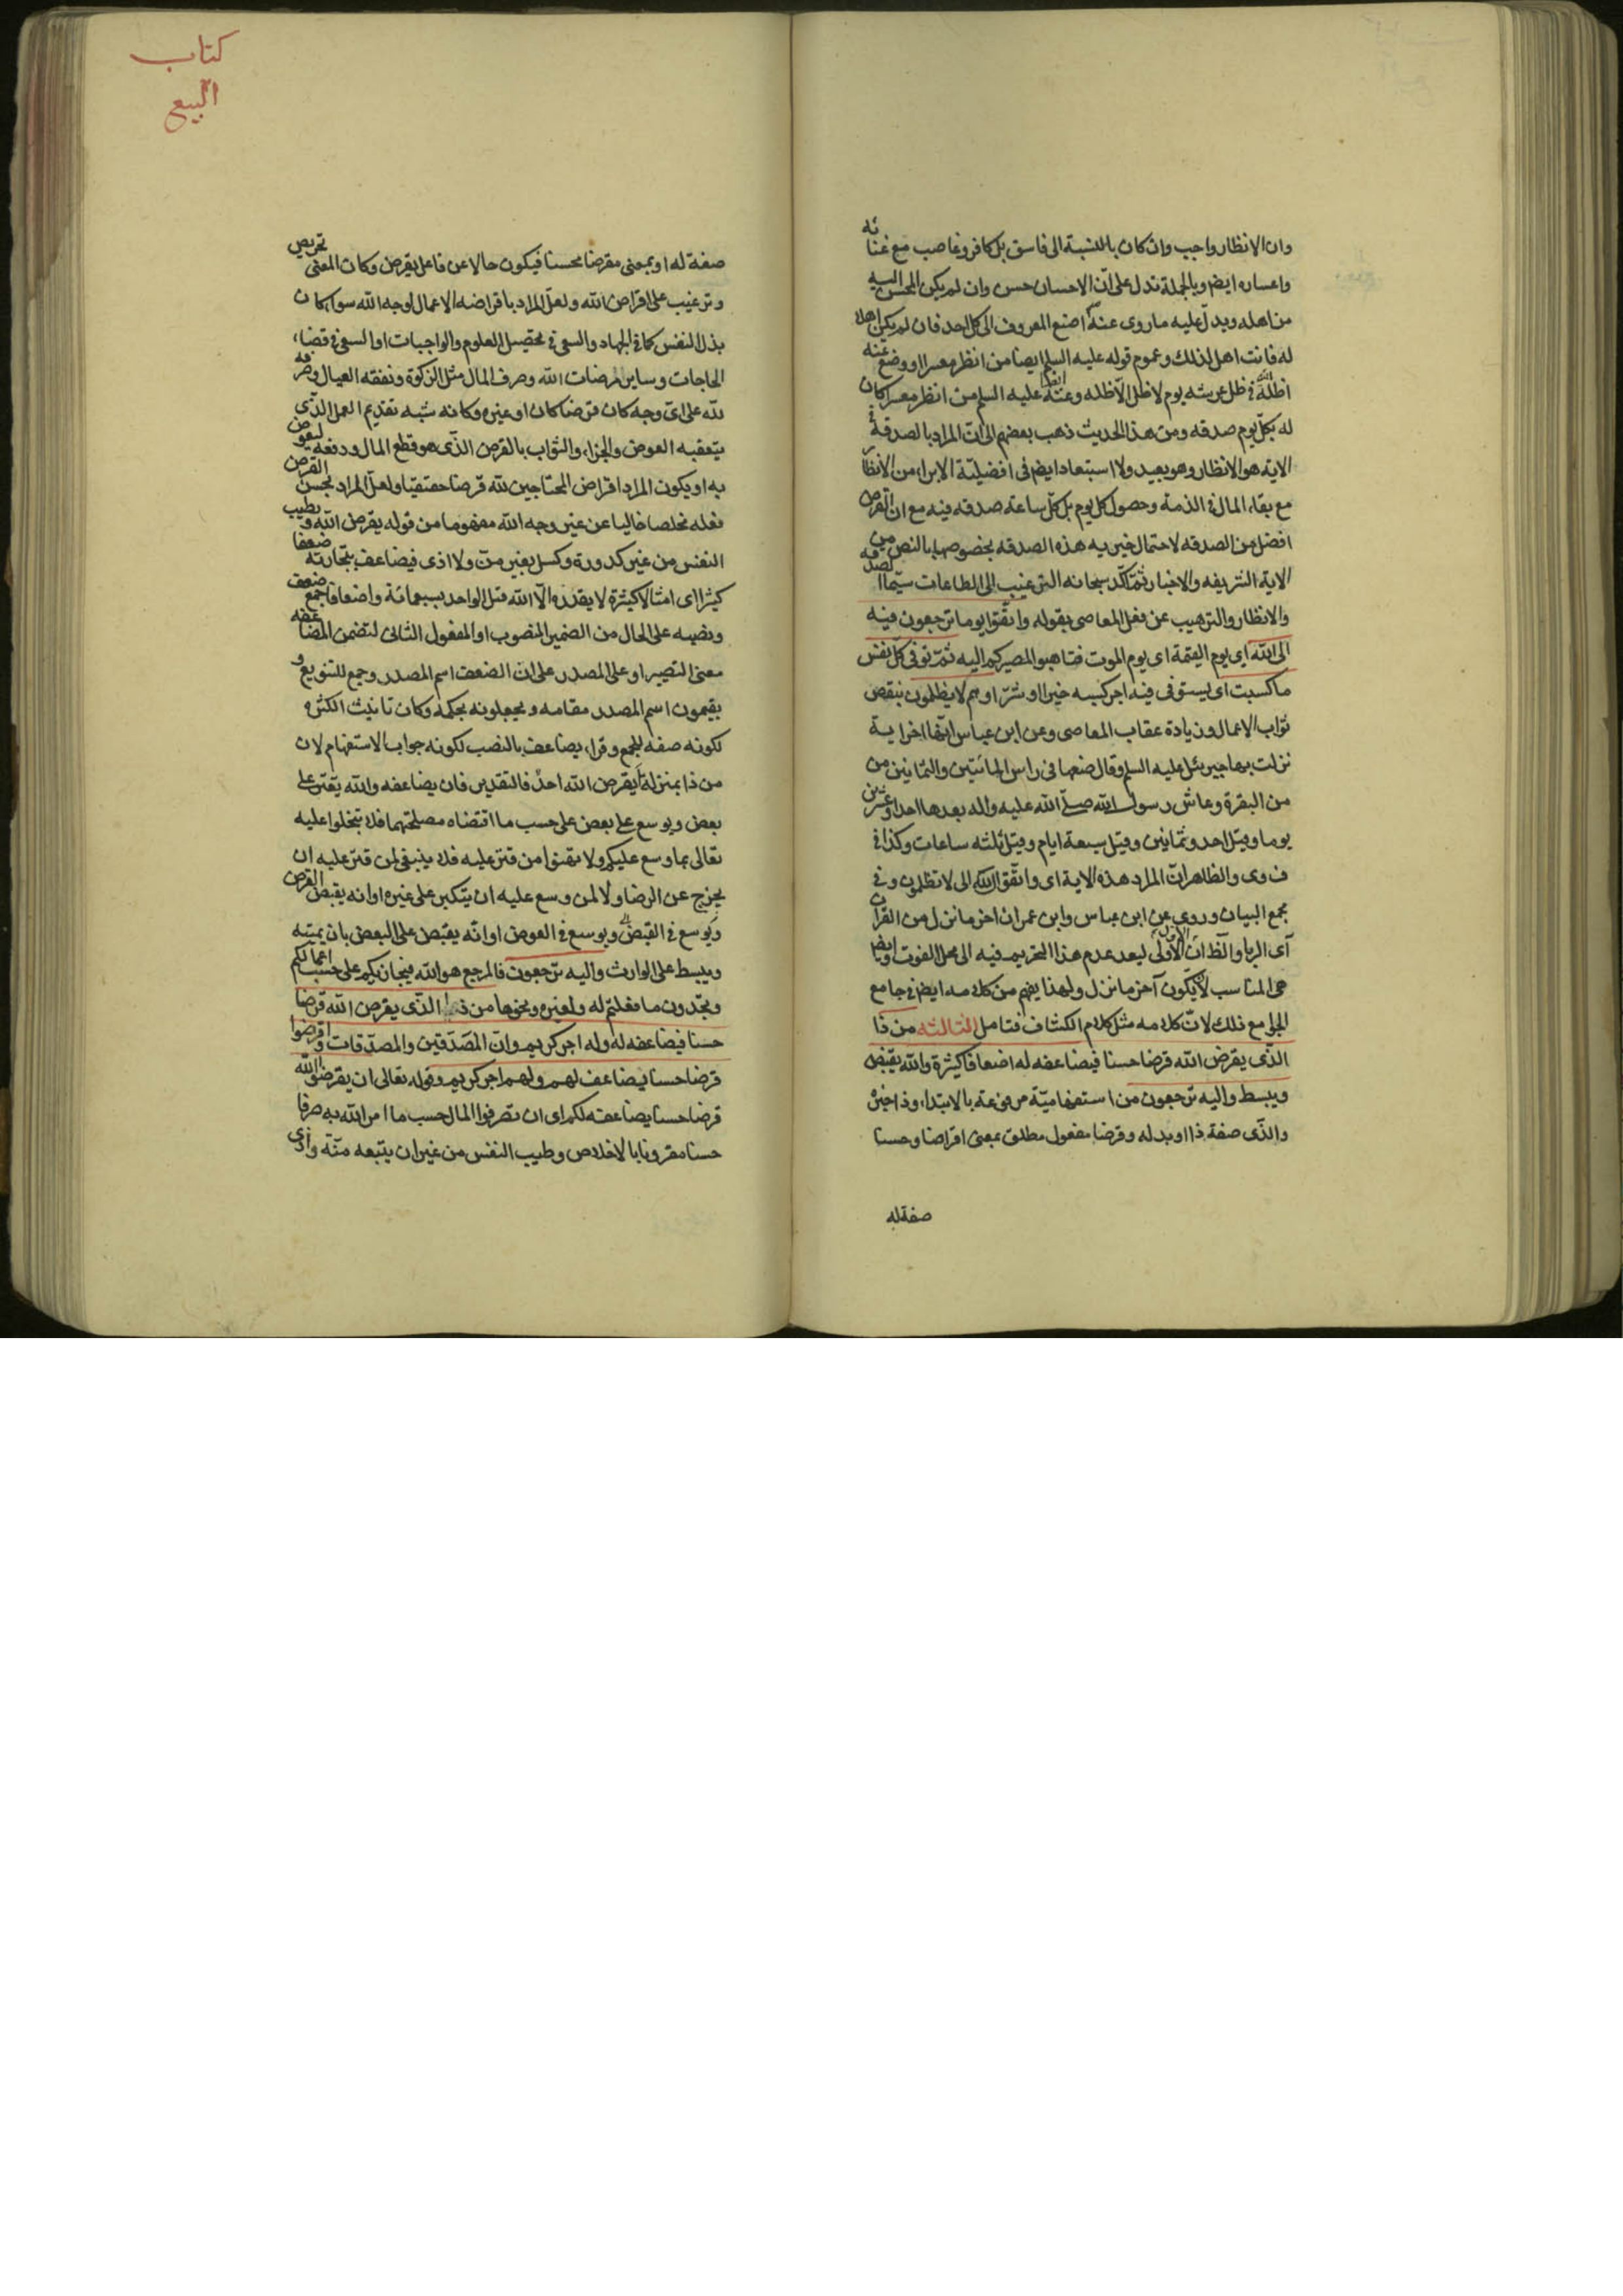 وان الانظار واجب وان كان بالنسبة الى فاسق بل كافر وغاصب مع غنائه
واعساره ايضم وبالجملة تدل على انّ الاحسان حسن وان لم يكن المحسن اليه
من اهله ويدل عليه ما روى عنه اصنع المعروف الى كل احد فان لم يكن اهلا
له فانت اهل لذلك وعموم قوله عليه السلم ايضا من انظر معسرا او وضع عنه
اظله الله فى ظل عرشه يوم لا ظل الا ظله وعنه ايضا عليه السلم من انظر معسرا كان
له بكل يوم صدقه ومن هذا الحديث ذهب بعضهم الى انّ المراد بالصدقة فى
الاية هو الانظار وهو بعيد ولا استبعاد ايضم فى افضليّة الابراء من الانظار
مع بقاء المال فى الذمة وحصول كل يوم بل كل ساعة صدقه فيه مع ان القرض
افضل من الصدقه لاحتمال خيريه هذه الصدقه بخصوصها بالنص من
الاية الشريفه والاخبار ثم اكّد سبحانه الترغيب الى الطاعات سيّما الصدقه
والانظار والترهيب عن فعل المعاصى بقوله واتقوا يوما ترجعون فيه
الى الله اى يوم القيمة اى يوم الموت فتاهبوا لمصيركم اليه ثمّ توفى كلّ نفس
ما كسبت اى يستوفى فيه اجر كسبه خيرا او شرّا وهم لا يظلمون بنقص
ثواب الاعمال وزيادة عقاب المعاصى وعن ابن عباس انها اخر اية
نزلت بها جبرئل عليه السلم وقال ضعها فى راس المائتين والثمانين من
من البقرة وعاش رسول الله صلى الله عليه واله بعدها احدا وعشرين
يوما وقيل احد وثمانين وقيل سبعة ايام وقيل ثلثه ساعات وكذا فى
ف وى والظاهر انّ المراد هذه الاية اى واتّقوا الله الى لا تظلمون وفى
مجمع البيان وروى عن ابن عباس وابن عمران اخر ما نزل من القران
آى الربا والظ ان الاول اولى لبعد عدم هذا التحريم فيه الى محل الفوت وايضم
هى المناسب لان يكون آخر ما نزل ولهذا يفهم من كلامه ايضم فى جامع
الجلى مع ذلك لانّ كلامه مثل كلام الكشاف فتامل الثالثه من ذا
الذى يقرض الله قرضا حسنا فيضاعفه له اضعافا كثيرة والله يقبض
ويبسط واليه ترجعون من استفهاميّة مرفوعة بالابتداء وذا خبره
والذى صفة ذا او بدله وقرضا مفعول مطلق بمعنى اقراضا وحسنا
صفة له
كتاب
البيع
صفة له او بمعنى مقرضا محسنا فيكون حالا عن فاعل يقرض وكان المعنى تحريص
وترغيب على اقراض الله ولعل المراد باقراضه الاعمال لوجه الله سواء كان
بذل النفس كما فى الجهاد والسعى فى تحصيل العلوم والواجبات او السعى فى قضاء
الحاجات وساير مرضات الله وصرف المال مثل الزكوة ونفقه العيال وصرفه
لله على اىّ وجه كان قرضا كان او غيره وكانه شبه تقديم العمل الذى
يتعقبه العوض والجزاء والثواب بالقرض الذى هو قطع المال ودفعه ليعوض
به او يكون المراد اقراض المحتاجين لله قرضا حقيقيا ولعل المراد بحسن القرض
فعله مخلصا خاليا عن غير وجه الله مفهوما من قوله يقرض الله وبطيب
النفس من غير كدورة وكسل بغير منّ ولا اذى فيضاعف بتجارته ضعفا
كثيرا اى امثالا كثيرة لا يقدره الا الله قيل الواحد بسبعمائة واضعافا جمع ضعف
ونصبه على الحال من الضمير المنصوب او المفعول الثانى لتضمن المضاعفه
معنى التصير او على المصدر على ان الضعف اسم المصدر وجمع للتنويع و
يقيمون اسم المصدر مقامه ويجعلونه بحكمه وكان تانيث الكثره
لكونه صفه للجمع وقراء يضاعف بالنصب لكونه جواب الاستفهام لان
من ذا بمنزلة ايقرض الله احدٌ فالتقدير فان يضاعفه والله يقتر على
بعض ويوسع على بعض على حسب ما اقتضاه مصلحتهما فلا تبخلوا عليه
تعالى بما وسع عليكم ولا تهنوا من قتر عليه فلا ينبغى لمن قتر عليه ان
يخرج عن الرضا ولا لمن وسع عليه ان يتكبر على غيره او انه يقبض القرض
ويوسع فى القبض ويوسع فى العوض او انّه يقبض على البعض بان يميته
ويبسط على الوارث واليه ترجعون فالمرجع هو الله فيجازيكم على حسب اعمالكم
وتجدون ما فعلتم له ولغيره ونحوها من ذا الذى يقرض الله قرضا
حسنا فيضاعفه له وله اجر كريم وانّ المصّدّقين والمصدّقات واقرضوا الله
قرضا حسنا يضاعف لهم ولهم اجر كريم وقوله تعالى ان يقرضوا الله
قرضا حسنا يضاعفه لكم اى ان تصرفوا المال حسب ما امر الله به صرفا
حسنا مقرونا بالاخلاص وطيب النفس من غير ان يتبعه منّة واذى